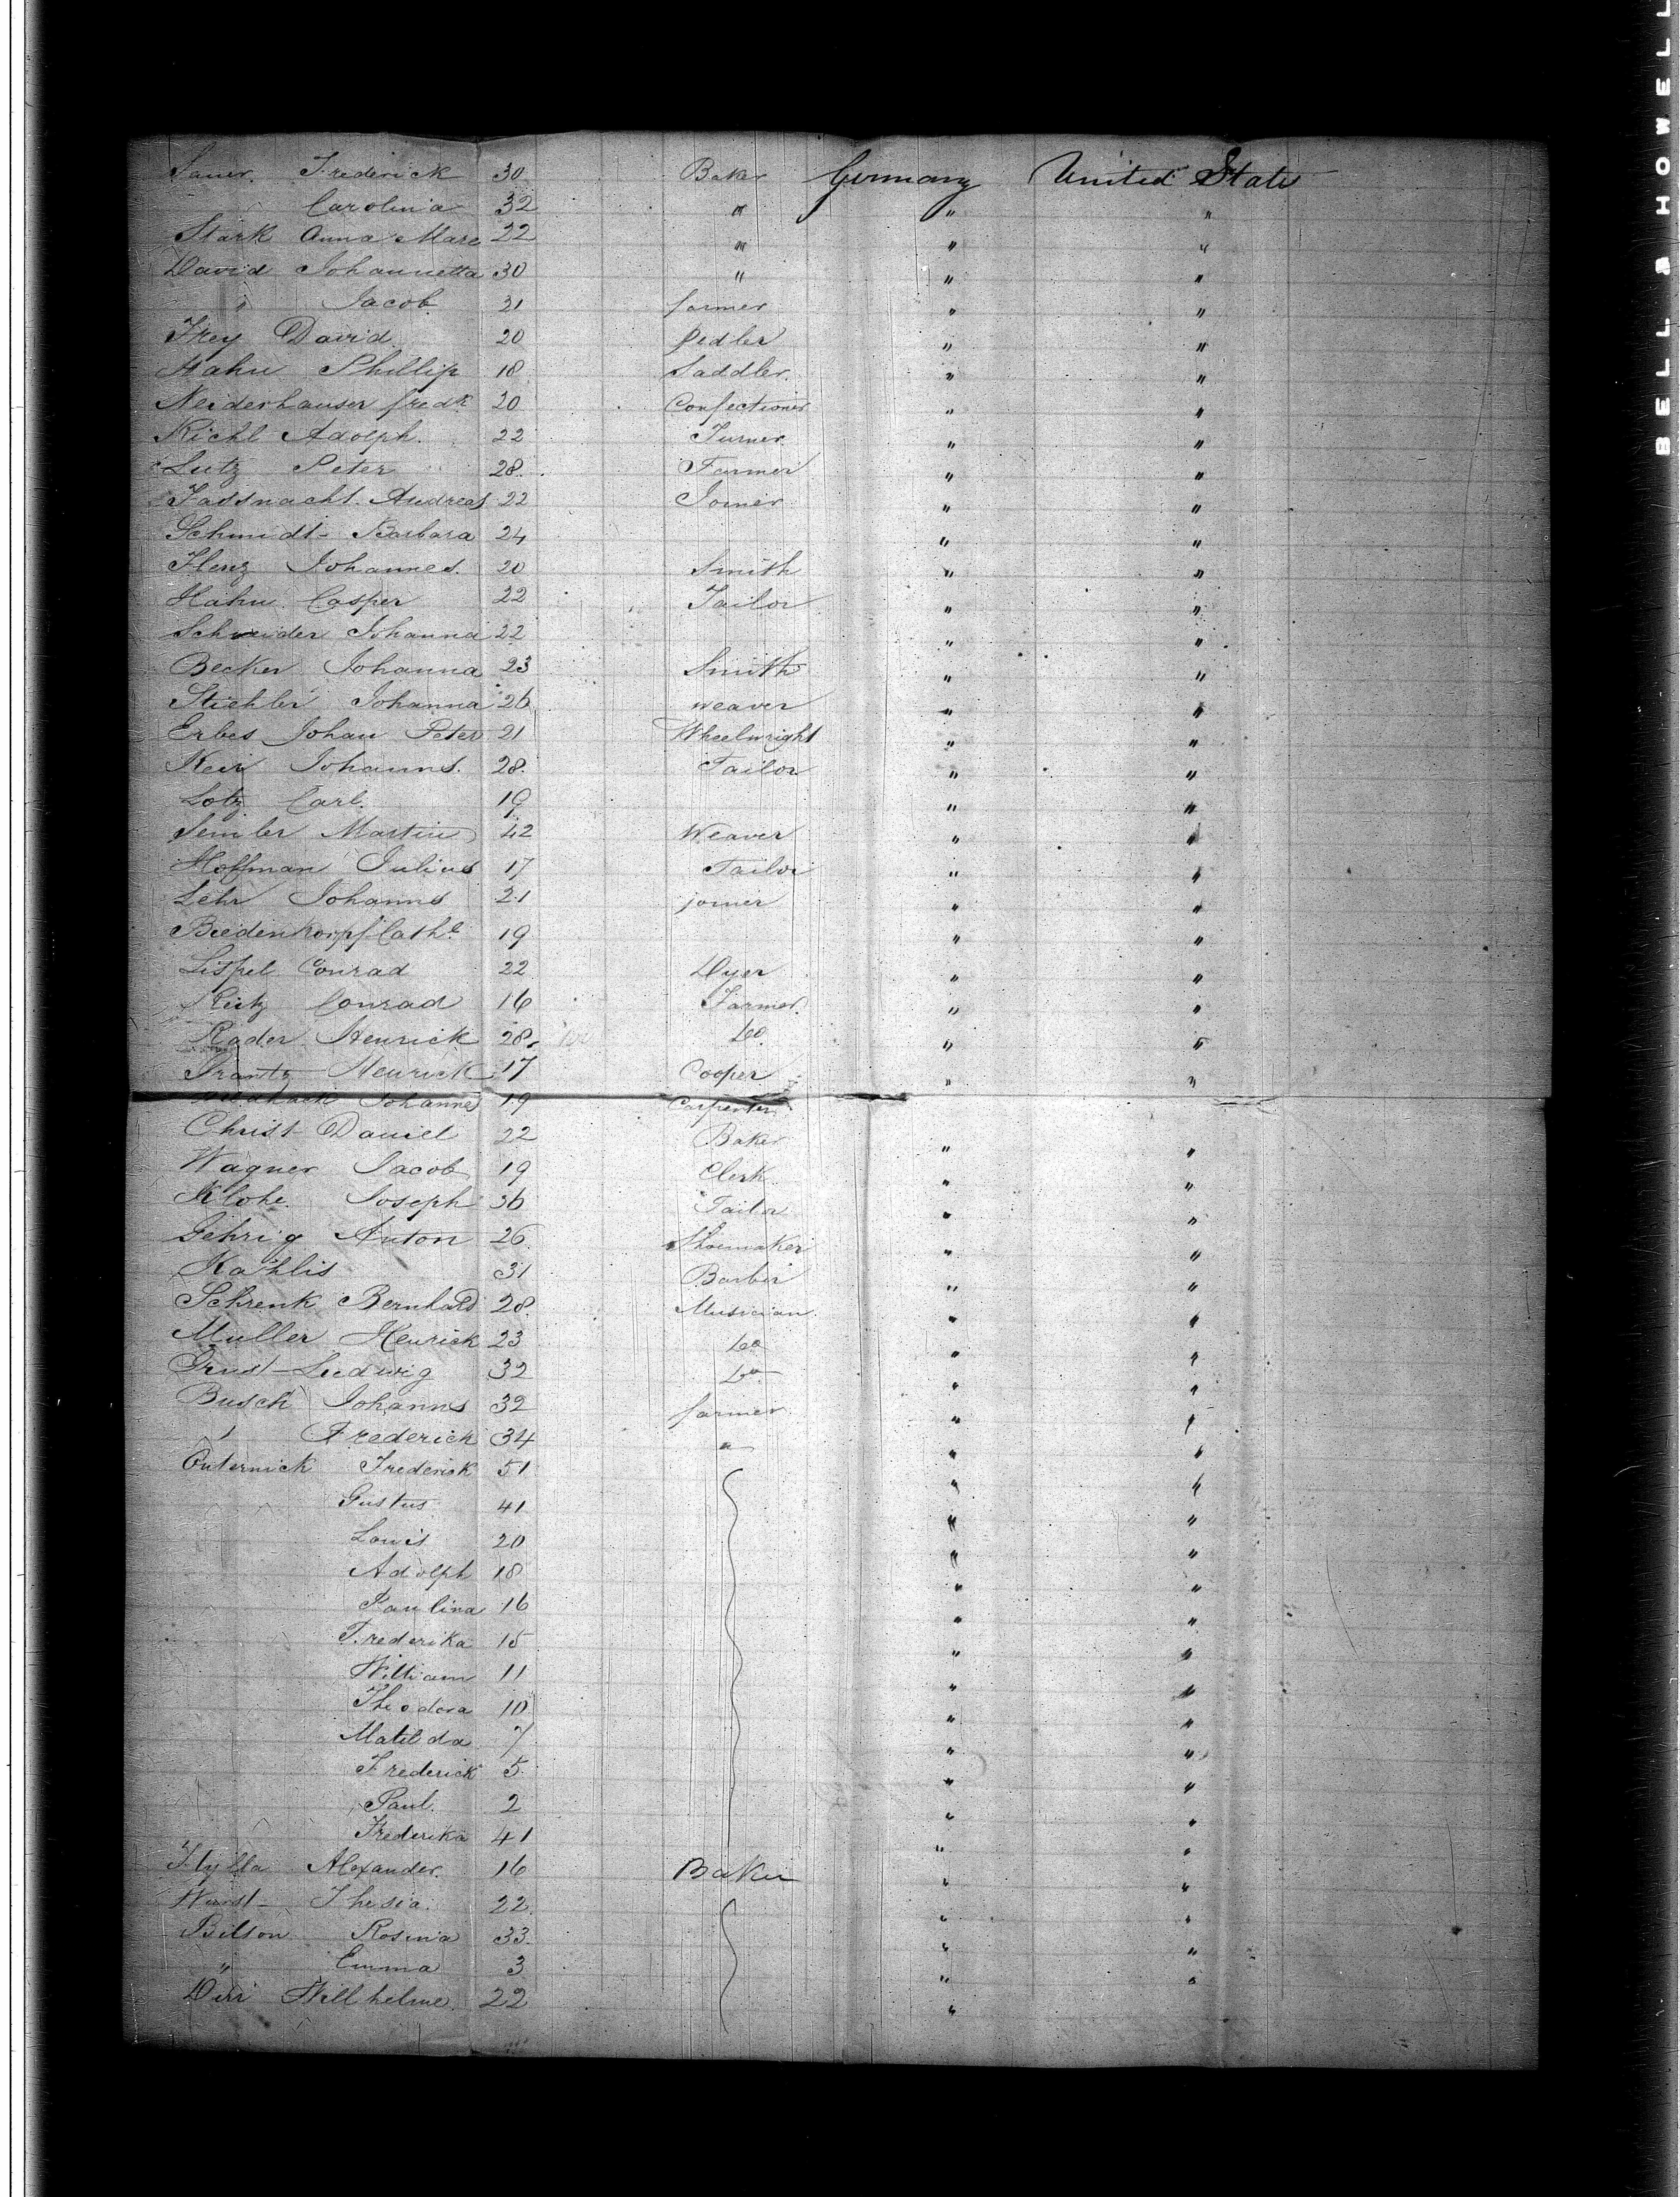 Sauer Frederick 30 Baker Germany United State
Carolina 32 " " "
Stark Anna Mare 22 " " "
David Johannetta 30 " " "
" Jacob 21 farmer " "
Frey David 20 pedler " "
Hahn Phillip 18 Saddler " "
Neiderhauser fredk 20 Confectioner " "
Richl Adolph 22 Turner " "
Lutz Peter 28 Farmer " "
Fassnacht Andreas 22 Joiner " "
Schmidt Barbara 24 " "
Henz Johannes 20 Smith " "
Hahn Casper 22 Tailor " "
Schneider Johanna 22 " "
Becker Johanna 23 Smith " "
Stiehler Johanna 26 weaver " "
Erbes Johan Peter 21 Wheelwright " "
Keir Johanns 28 Tailor " "
Lotz Carl 19 " "
Semler Martin 42 Weaver " "
Hoffman Julius 17 Tailor " "
Lehr Johanns 21 joiner " "
Biedenkorpf Cathe 19 " "
Lispel Conrad 22 Dyer " "
Conrad 16 Farmer " "
Rader Henrick 28 Do " "
Frantz Henrick 17 Cooper " "
Johannes 19 Carpenter
Christ Daniel 22 Baker " "
Wagner Jacob 19 Clerk " "
Klohe Joseph 36 Tailor " "
Gehrig Anton 26 Shoemaker " "
Kahlis 31 Barber " "
Schrenk Bernhard 28 Musician " "
Muller Henrick 23 Do " "
Ludwig 32 Do " "
Busch Johanns 32 farmer " "
" Frederick 34 " " "
Outernick Frederick 51 " "
Gustus 41 " "
Louis 20 " "
Adolph 18 " "
Paulina 16 " "
Frederika 15 " "
William 11 " "
Theodora 10 " "
Matilda 7 " "
Frederick 5 " "
Paul 2 " "
Frederika 41 " "
Hylla Alexander 16 Baker " "
Wurst Thesia 22 " "
Bilson Rosina 33 " "
" Emma 3 " "
Dirr Wilhelme 22 "
BELL & HOWELL